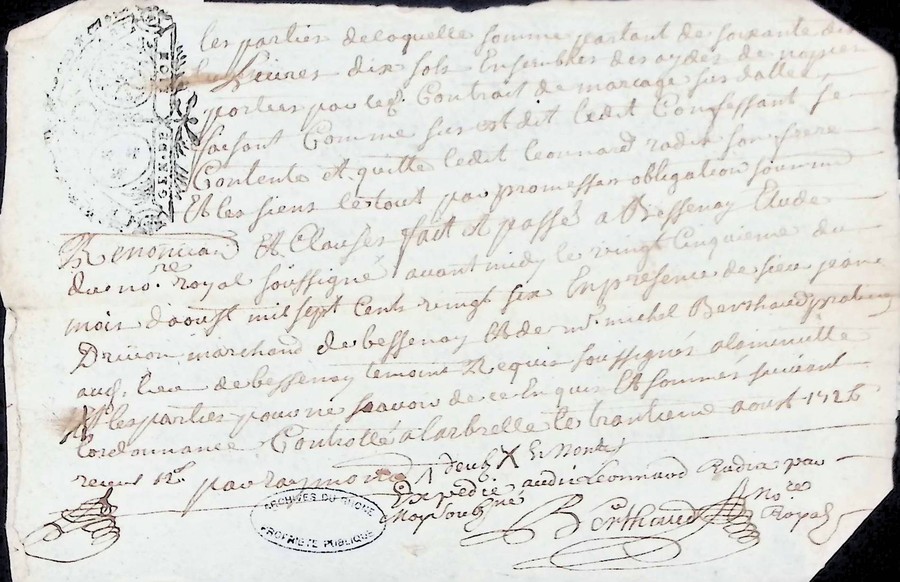 les parties de laquelle somme partant de soixante dix
Livres dix sols Ensembles des aydes de nopces
portées par le Contrat de mariage sus dallé
faisant Comme sus est dit ledit Confessant se
Contente et quitte ledit leonnard radix son frere
Et les siens le tout par promesses obligation
Renonciaon Et Clauses fait Et passés a Bessenay Etude
du no.re royal soussigné avant midy le vingt Cinquieme du
mois daoust mil sept Cents vingt six En presence de sieur jean
Drivon marchand de bessenay Et de mr. michel Berthaud praticien
aud. lieu de bessenay temoins Requis soussignés a la minutte
Et les parties pour ne scavoir de ce Enquis Et sommés suivant
lordonnance Controllé a larbrelle le trantieme aoust 1726
reçus 12s. par raymond
deux X En Montes
Expedié audit Leonnard Radix par
Moy soubsigné
Berthaud
No.re
Royal
GEN. DE LION
ARCHIVES DU RHONE
PROPRIÉTÉ PUBLIQUE